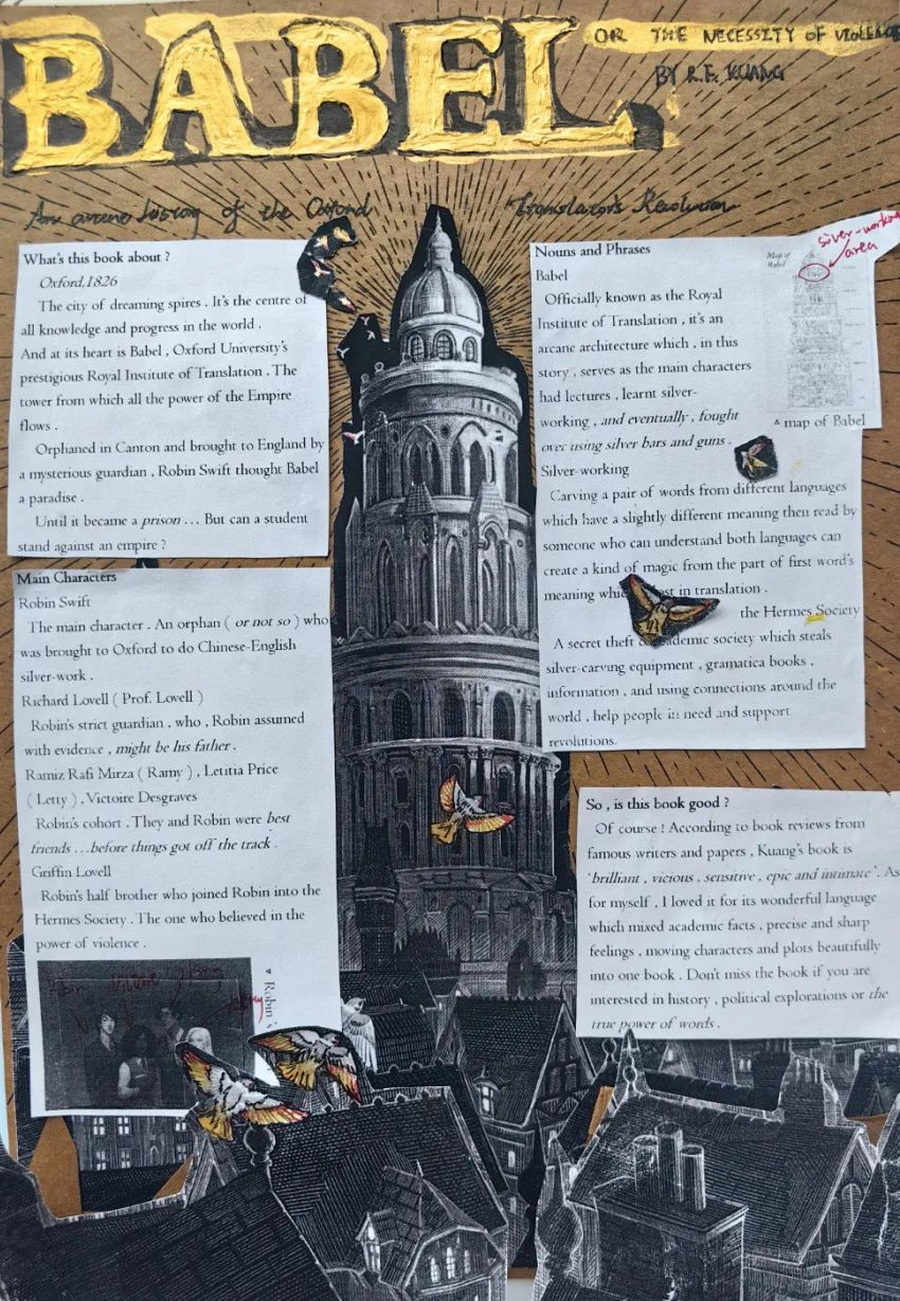 BABEL,
OR THE NECESSITY OF VIOLENCE
BY R.F. KUANG
An arcane history of the Oxford Translator's Revolution
What's this book about ?
Oxford,1826
The city of dreaming spires . It's the centre of
all knowledge and progress in the world .
And at its heart is Babel , Oxford University's
prestigious Royal Institute of Translation . The
tower from which all the power of the Empire
flows .
Orphaned in Canton and brought to England by
a mysterious guardian , Robin Swift thought Babel
a paradise .
Until it became a prison ... But can a student
stand against an empire ?
Main Characters
Robin Swift
The main character . An orphan ( or not so ) who
was brought to Oxford to do Chinese-English
silver-work .
Richard Lovell ( Prof. Lovell )
Robin's strict guardian , who , Robin assumed
with evidence , might be his father .
Ramiz Rafi Mirza ( Ramy ) , Letitia Price
( Letty ) , Victoire Desgraves
Robin's cohort . They and Robin were best
friends ...before things got off the track .
Griffin Lovell
Robin's half brother who joined Robin into the
Hermes Society . The one who believed in the
power of violence .
Robin
Nouns and Phrases
Babel
Officially known as the Royal
Institute of Translation , it's an
arcane architecture which , in this
story , serves as the main characters
had lectures , learnt silver-
working , and eventually , fought
over using silver bars and guns .
silver-working
area
Map of
Babel
map of Babel
Silver-working
Carving a pair of words from different languages
which have a slightly different meaning then read by
someone who can understand both languages can
create a kind of magic from the part of first word's
meaning in translation .
the Hermes Society
A secret theft academic society which steals
silver-carving equipment , gramatica books ,
information , and using connections around the
world , help people in need and support
revolutions.
So , is this book good ?
Of course ! According to book reviews from
famous writers and papers , Kuang's book is
'brilliant , vicious , sensitive , epic and intimate' . As
for myself , I loved it for its wonderful language
which mixed academic facts , precise and sharp
feelings , moving characters and plots beautifully
into one book . Don't miss the book if you are
interested in history , political explorations or the
true power of words .